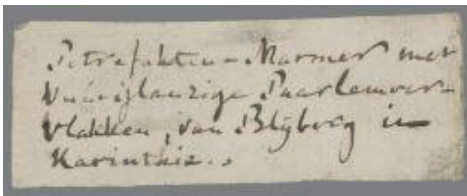 Petrefakten-Marmer met
vuurglanzige Paarlemoer-
vlakken, van Blyberg in
Karinthie.